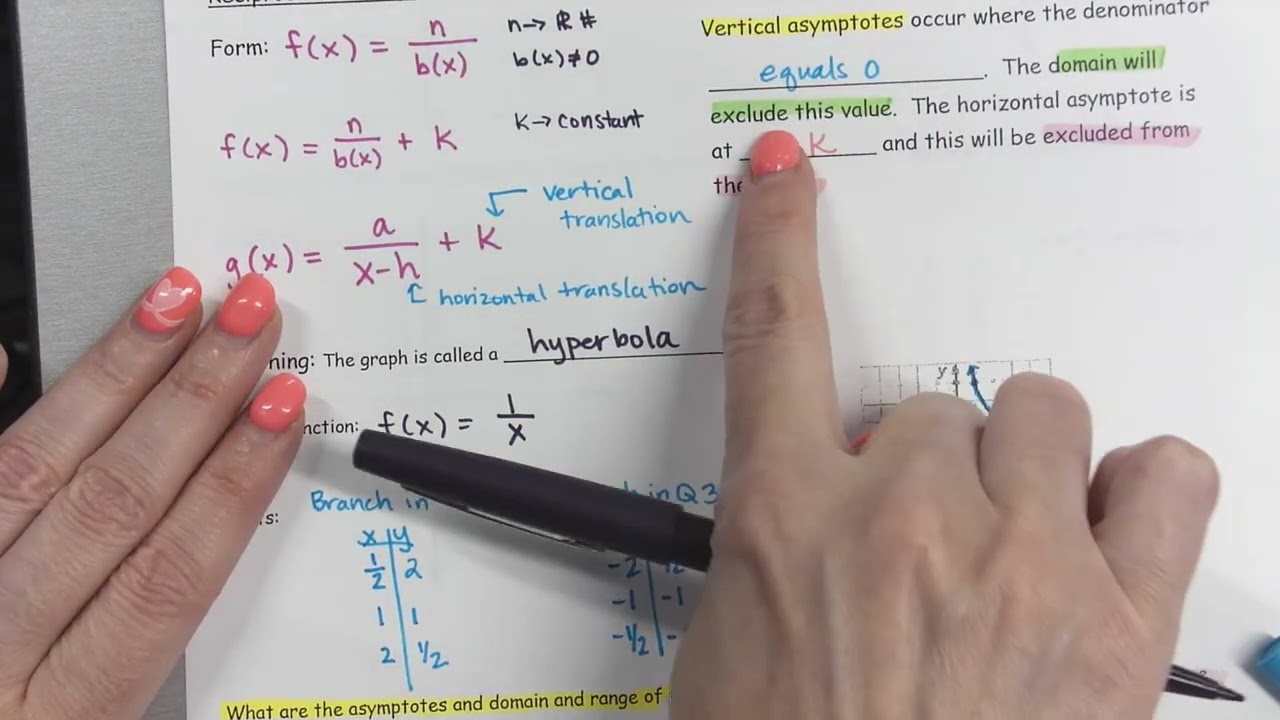 Form: f(x) = n/b(x) n → ℝ #
b(x) ≠ 0
f(x) = n/b(x) + K K → constant
g(x) = a/(x-h) + K vertical
translation
horizontal translation
ning: The graph is called a hyperbola
nction: f(x) = 1/x
Branch in
s:
x | y
1/2 | 2
1 | 1
2 | 1/2
in Q3
-2
-1 | -1
-1/2 | -
What are the asymptotes and domain and range of
Vertical asymptotes occur where the denominator
equals 0. The domain will
exclude this value. The horizontal asymptote is
at K and this will be excluded from
the
y